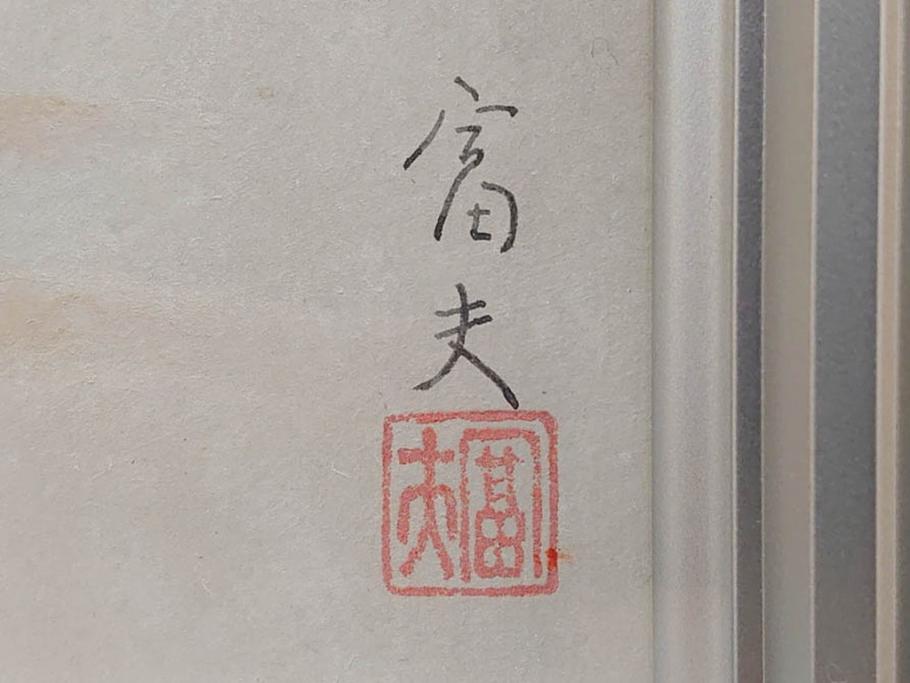 富夫
富夫